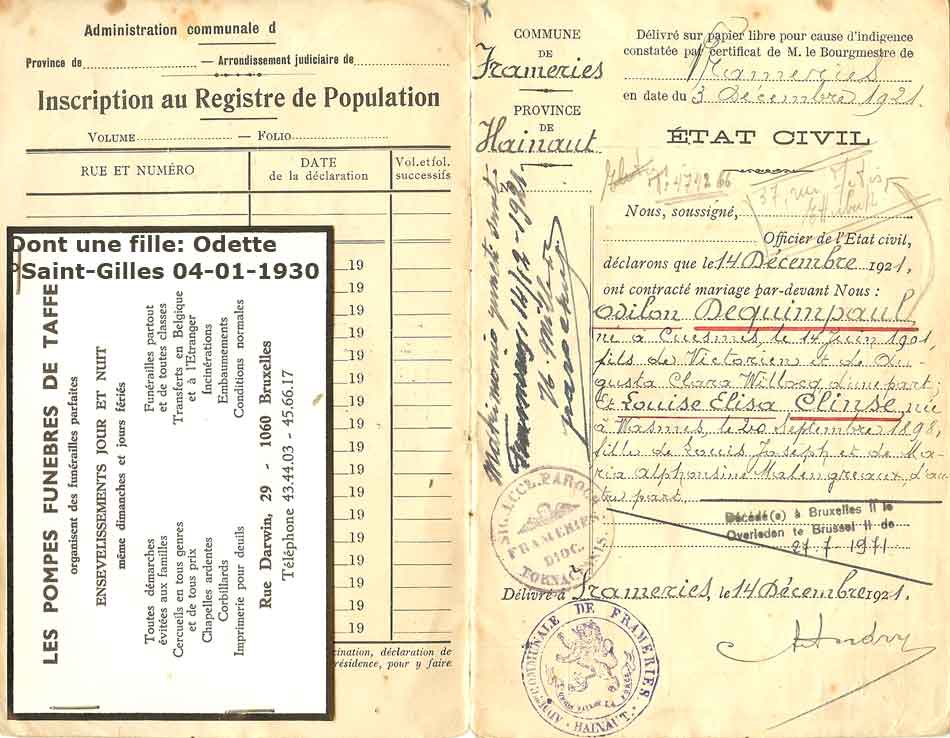 Administration communale d
Province de — Arrondissement judiciaire de
Inscription au Registre de Population
VOLUME — FOLIO
RUE ET NUMÉRO
DATE
de la déclaration
Vol.et fol.
successifs
Dont une fille: Odette
°Saint-Gilles 04-01-1930
19
19
19
19
19
19
19
19
19
19
19
19
19
19
cination, déclaration de
résidence, pour y faire
LES POMPES FUNEBRES DE TAFFE
organisent des funérailles parfaites
ENSEVELISSEMENTS JOUR ET NUIT
même dimanches et jours fériés
Toutes démarches
évitées aux familles
Cercueils en tous genres
et de tous prix
Chapelles ardentes
Corbillards
Imprimerie pour deuils
Funérailles partout
et de toutes classes
Transferts en Belgique
et à l'Etranger
Incinérations
Embaumements
Conditions normales
Rue Darwin, 29 - 1060 Bruxelles
Téléphone 43.44.03 - 45.66.17
COMMUNE
DE
Frameries
PROVINCE
DE
Hainaut
Matrimonio juncti sunt
14/12-1921
Délivré sur papier libre pour cause d'indigence
constatée par certificat de M. le Bourgmestre de
Frameries
en date du 3 Décembre 1921.
ÉTAT CIVIL
37, rue
Nous, soussigné,
Officier de l'Etat civil,
déclarons que le 14 Décembre 1921,
ont contracté mariage par-devant Nous :
Odilon Dequimpaul
né à Cuesmes, le 14 Juin 1901,
fils de Victorien et de Au-
gusta Clara Willocq d'une part,
Et Louise Elisa Clinse, née
à Wasmes, le 20 Septembre 1898,
fille de Louis Joseph et de Ma-
ria Alphonsine Malengreaux d'au-
tre part.
Décédé(e) à Bruxelles II le
Overleden te Brussel II de
27.7 1971
SIG. ECCL. PAROC.
FRAMERIES.
DIOC.
TORNACENSIS.
Délivré à Frameries, le 14 Décembre 1921.
ADMON COMMUNALE DE FRAMERIES.
HAINAUT.